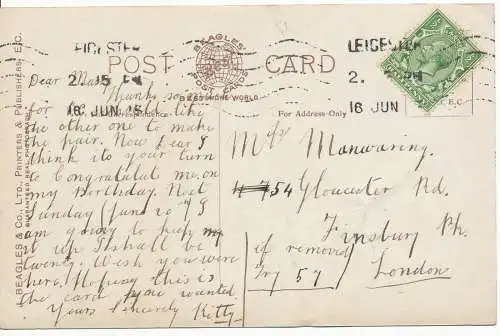 LEICESTER
2. 15 PM
16 JUN 15
POST CARD
BEAGLES' POST CARDS
BEST IN THE WORLD
LEICESTER
2. PM
16 JUN
For Correspondence
For Address Only
BEAGLES & Co., LTD. PRINTERS & PUBLISHERS, E.C.
Dear
Thanks so
for P.C. would like
the other one to make
the pair. Now dear I
think its your turn
to congratulate me, on
my Birthday. Next
Sunday (June 20th) I
am going to
it up I shall be
twenty. Wish you were
here. Hoping this is
the card you wanted
Yours Sincerely Kitty
Manwaring.
754
Gloucester Rd.
Finsbury Pk.
London
if removed
try 57